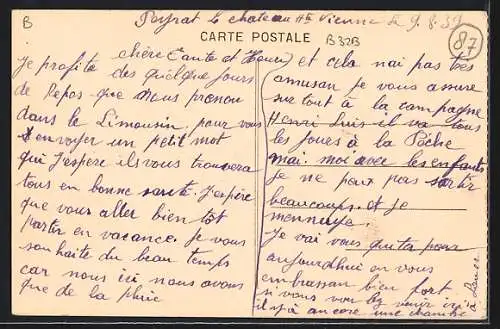 B
Peyrat le chateau Hte Vienne le 9.8.39
CARTE POSTALE
B32B
87
chère Tante et Henri
Je profite des quelque jours
de repos que nous prenon
dans le Limousin pour vous
envoyer un petit mot
qui J'espere ils vous trouvera
tous en bonne santé. J'espère
que vous aller bien tôt
partir en vacance. Je vous
souhaite du beau temps
car nous ici nous avons
que de la pluie
et cela n'ai pas très
amusan je vous amuse
sur tout à la campagne
Henri Luis il va tous
les jours à la Pêche
mai moi avec les enfants
je ne peux pas sortir
beaucoups et je
mennuye.
Je vai vous quiter pour
aujourdhui en vous
embrassan bien fort
si vous voulez venir ici
il y à ancore une chambre
à Louer